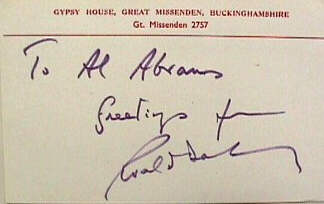 GYPSY HOUSE, GREAT MISSENDEN, BUCKINGHAMSHIRE
Gt. Missenden 2757
To Al Abrams
Greetings from
Roald Dahl